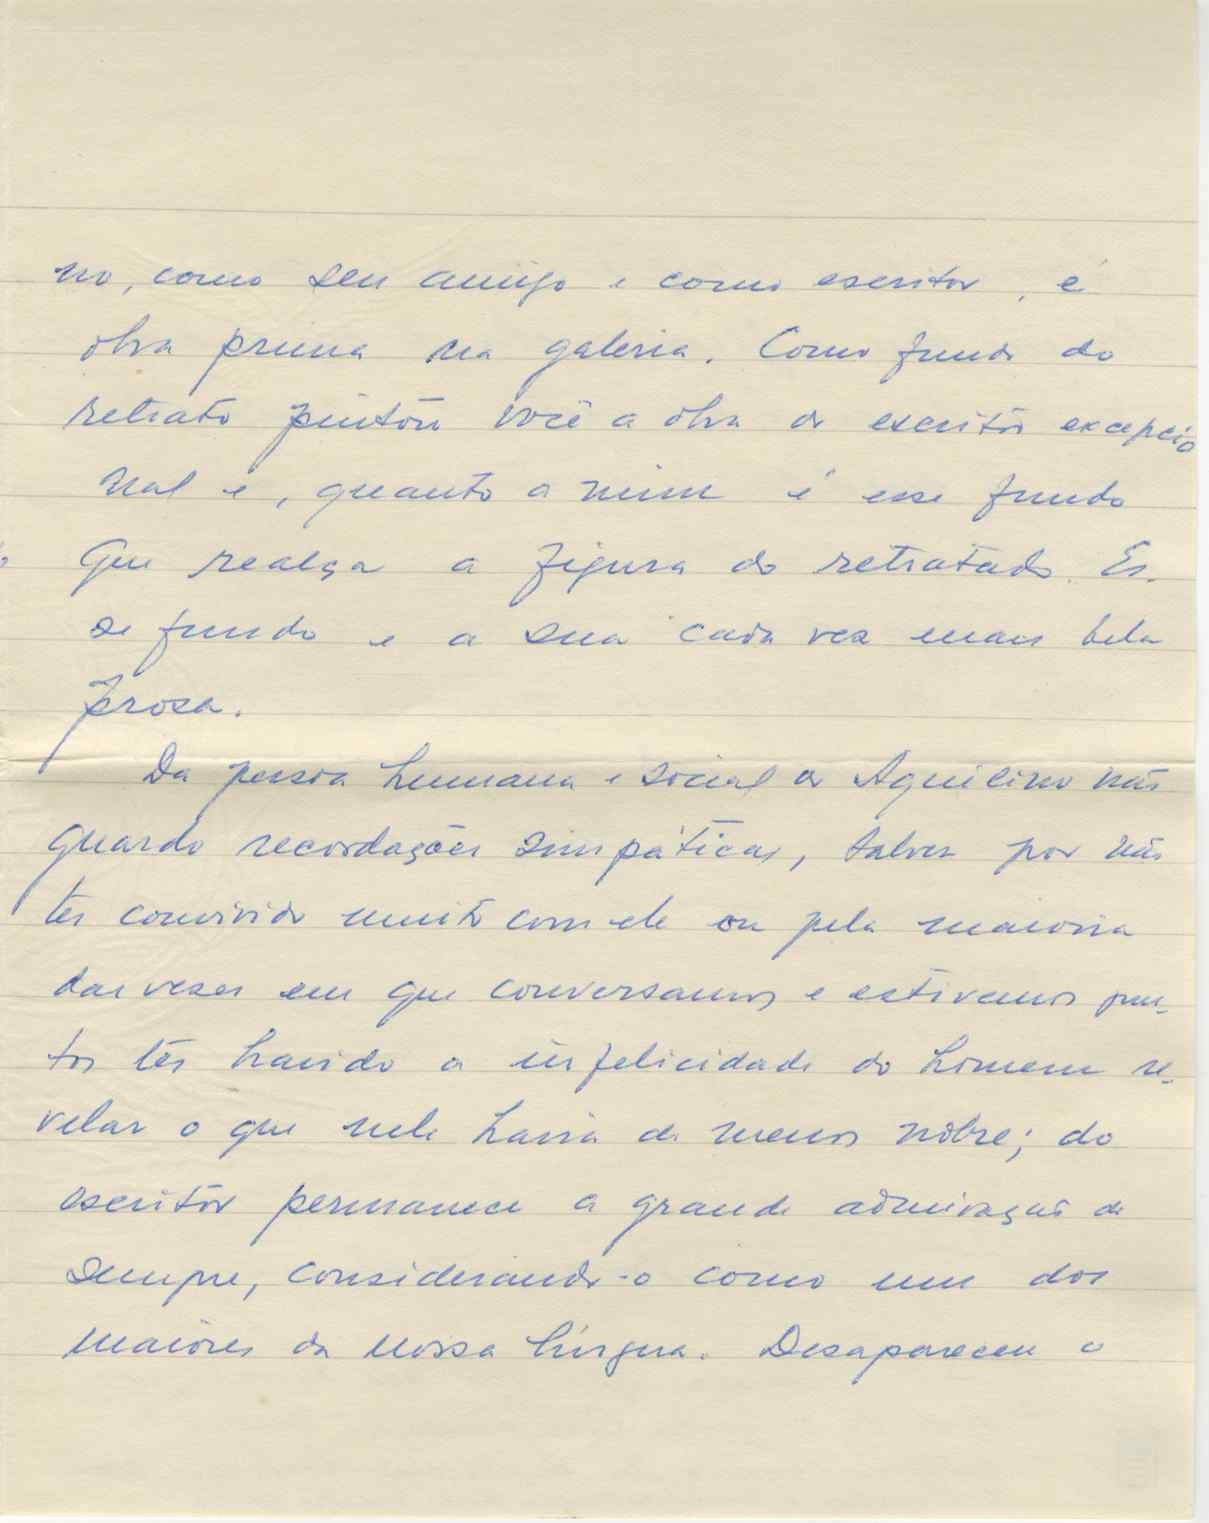 no, como seu amigo e como escritor, é
obra prima na galeria. Como fundo do
retrato pintou você a obra do escritôr excepcio
nal e, quanto a mim é esse fundo
que realça a figura do retratado. Es-
se fundo e a sua cada vez mais bela
prosa.
Da pessoa humana e social de Aquilino não
guardo recordações simpáticas, talvez por não
ter convivido muito com ele ou pela maioria
das vezes em que conversamos e estivemos jun-
tos têr havido a infelicidade do homem re-
velar o que nele havia de menos nôbre; do
escritôr permanece a grande admiração de
sempre, considerando-o como um dos
maiores da nossa língua. Desapareceu o